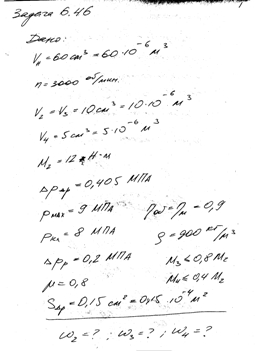 Задача 6.46
Дано:
V₁ = 60 см³ = 60·10⁻⁶ м³
n = 3000 об/мин.
V₂ = V₃ = 10 см³ = 10·10⁻⁶ м³
V₄ = 5 см³ = 5·10⁻⁶ м³
M₂ = 12 Н·м
Δp др = 0,405 МПа
p max = 9 МПа η об = η м = 0,9
p кл = 8 МПа ρ = 900 кг/м³
Δp р = 0,2 МПа M₃ ≤ 0,8 M₂
μ = 0,8 M₄ ≤ 0,4 M₂
S др = 0,15 см² = 0,15·10⁻⁴ м²
ω₂ = ? ; ω₃ = ? ; ω₄ = ?